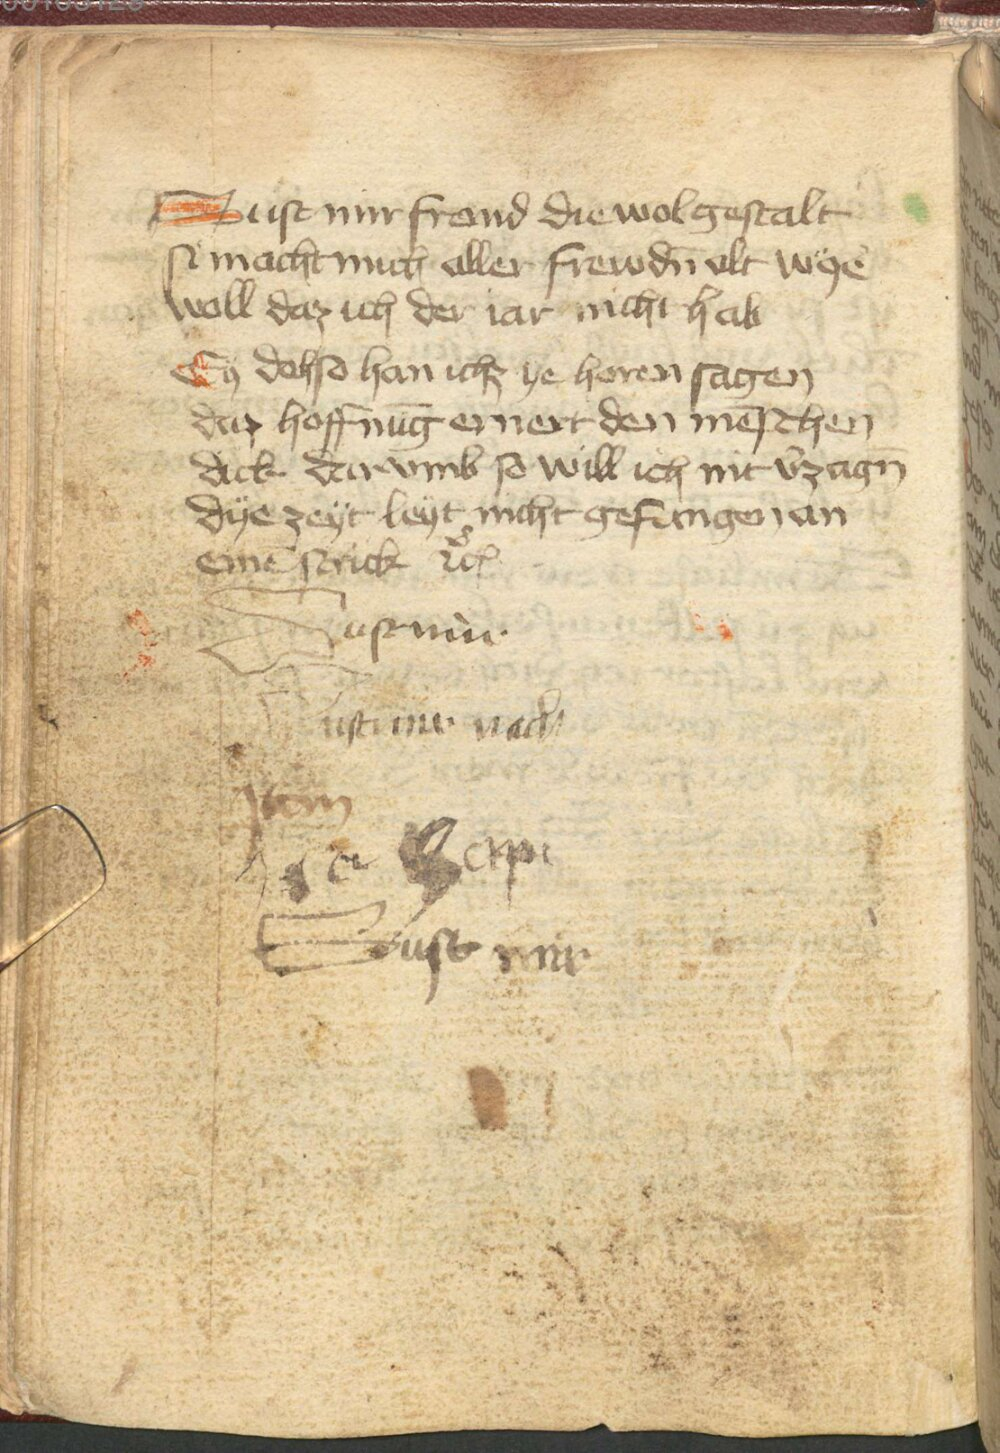 Sust mir fremd die wol gestalt
si macht mich aller frewdn̄ alt wÿe
woll daz ich der iar nicht hab
Eÿ doh so han ichz ye horen sagen
daz hoffnūg ernert den mēschen
dick darvmb so will ich nit v̄zagn̄
dÿe zeÿt leÿt nicht gefangen an
einē strick
Sust mir
Sust mir nach
Item
Sust mir